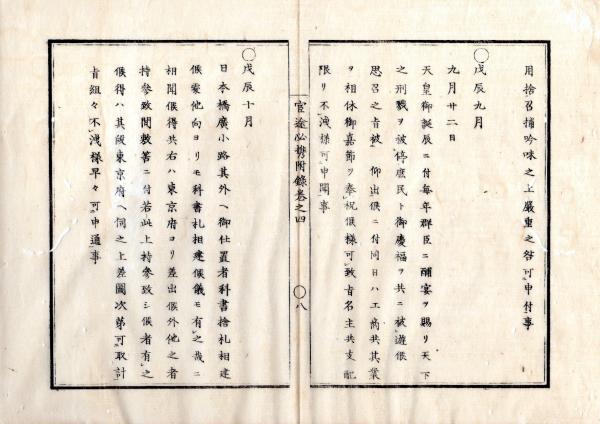 用捨召捕吟味之上嚴重之咎可申付事
○戊辰九月
九月廿二日
天皇御誕辰ニ付毎年群臣ニ酺宴ヲ賜リ天下
之刑戮ヲ被停庶民ト御慶福ヲ共ニ被遊候
思召之旨被 仰出候ニ付同日ハ工商共其業
ヲ相休御嘉節ヲ奉祝候様可致旨名主共支配
限リ不洩様可申聞事
官途必携附錄巻之四
○八
○戊辰十月
日本橋廣小路其外ヘ御仕置者科書捨札相建
候處他向ヨリモ科書札相建候儀モ有之哉ニ
相聞候得共右ハ東京府ヨリ差出候外他之者
持參致間敷筈ニ付若此上持參致シ候者有之
候得ハ其段東京府ヘ伺之上差圖次第可取計
旨組々不洩様早々可申通事